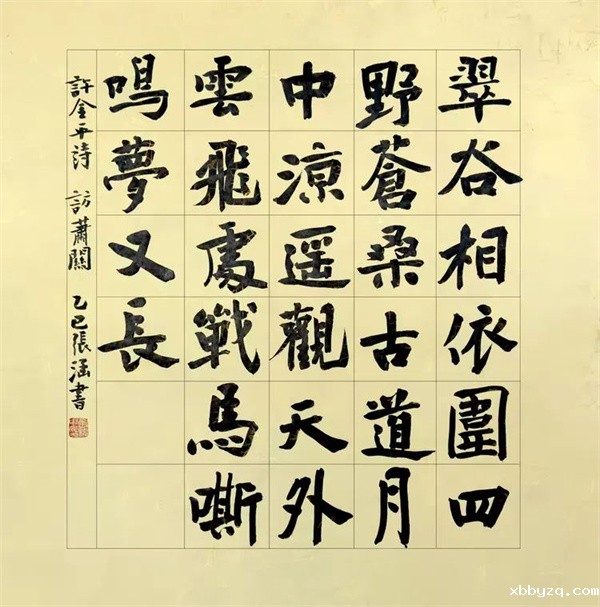 翠谷相依圍四
野蒼桑古道月
中涼遥觀天外
雲飛處戰馬嘶
鳴夢又長
許金平詩 訪蕭關 乙巳張涵書
xbbyzq.com